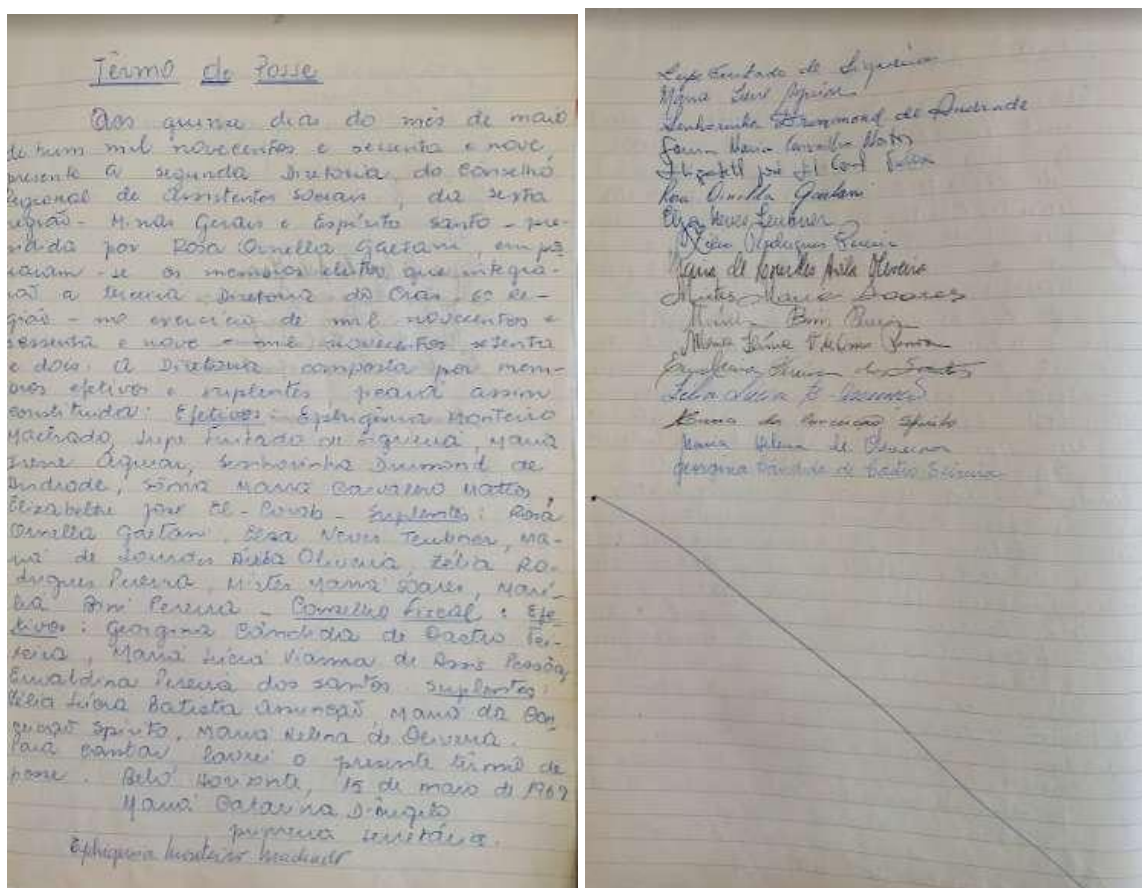 Têrmo de Posse
Aos quinze dias do mês de maio
de hum mil novecentos e sessenta e nove,
presente a segunda Diretoria do Conselho
Regional de Assistentes Sociais, da sexta
região - Minas Gerais e Espírito Santo - pre-
sidida por Rosa Ornella Gaetani, empos
saram-se os membros eleitos que integra-
rão a terceira Diretoria do Cras, 6a Re-
gião - no exercício de mil novecentos e
sessenta e nove a mil novecentos setenta
e dois. A Diretoria composta por mem-
bros efetivos e suplentes ficará assim
constituida: Efetivos: Ephigênia Monteiro
Machado, Lupe Furtado de Siqueira, Maria
Irene Aguiar, Senhorinha Drumond de
Andrade, Sônia Maria Carvalho Mattos,
Elizabethe José El-Corab - Suplentes: Rosa
Ornella Gaetani, Elza Neves Teubner, Ma-
ria de Lourdes Ávila Oliveira, Zélia Ro-
drigues Pereira, Mirtes Maria Soares, Marí-
lia Bini Pereira - Conselho Fiscal: Efe-
tivos: Georgina Cândida de Castro Fer-
reira, Maria Lúcia Vianna de Assis Pessôa,
Euvaldina Pereira dos Santos. Suplentes:
Célia Lúcia Batista Assunção, Maria da Con
ceição Spirito, Maria Helena de Oliveira.
Para constar, lavrei o presente têrmo de
posse. Belo Horizonte, 15 de maio de 1969
Maria Catarina D'Angelo
primeira secretária.
Ephigenia Monteiro Machado
Lupe Furtado de Siqueira
Maria Irene Aguiar
Senhorinha Drummond de Andrade
Sonia Maria Carvalho Mattos
Elizabeth José El Corab
Rosa Ornella Gaetani
Elza Neves Teubner
Zélia Rodrigues Pereira
Maria de Lourdes Ávila Oliveira
Mirtes Maria Soares
Marília Bini Pereira
Maria Lúcia
Euvaldina Pereira dos Santos
Célia Lúcia B. Assunção
Maria da Conceição Spirito
Maria Helena de Oliveira
Georgina Cândida de Castro Ferreira